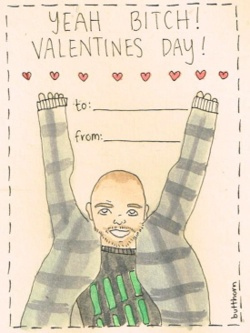 YEAH BITCH!
VALENTINES DAY!
to:
from:
butthorn